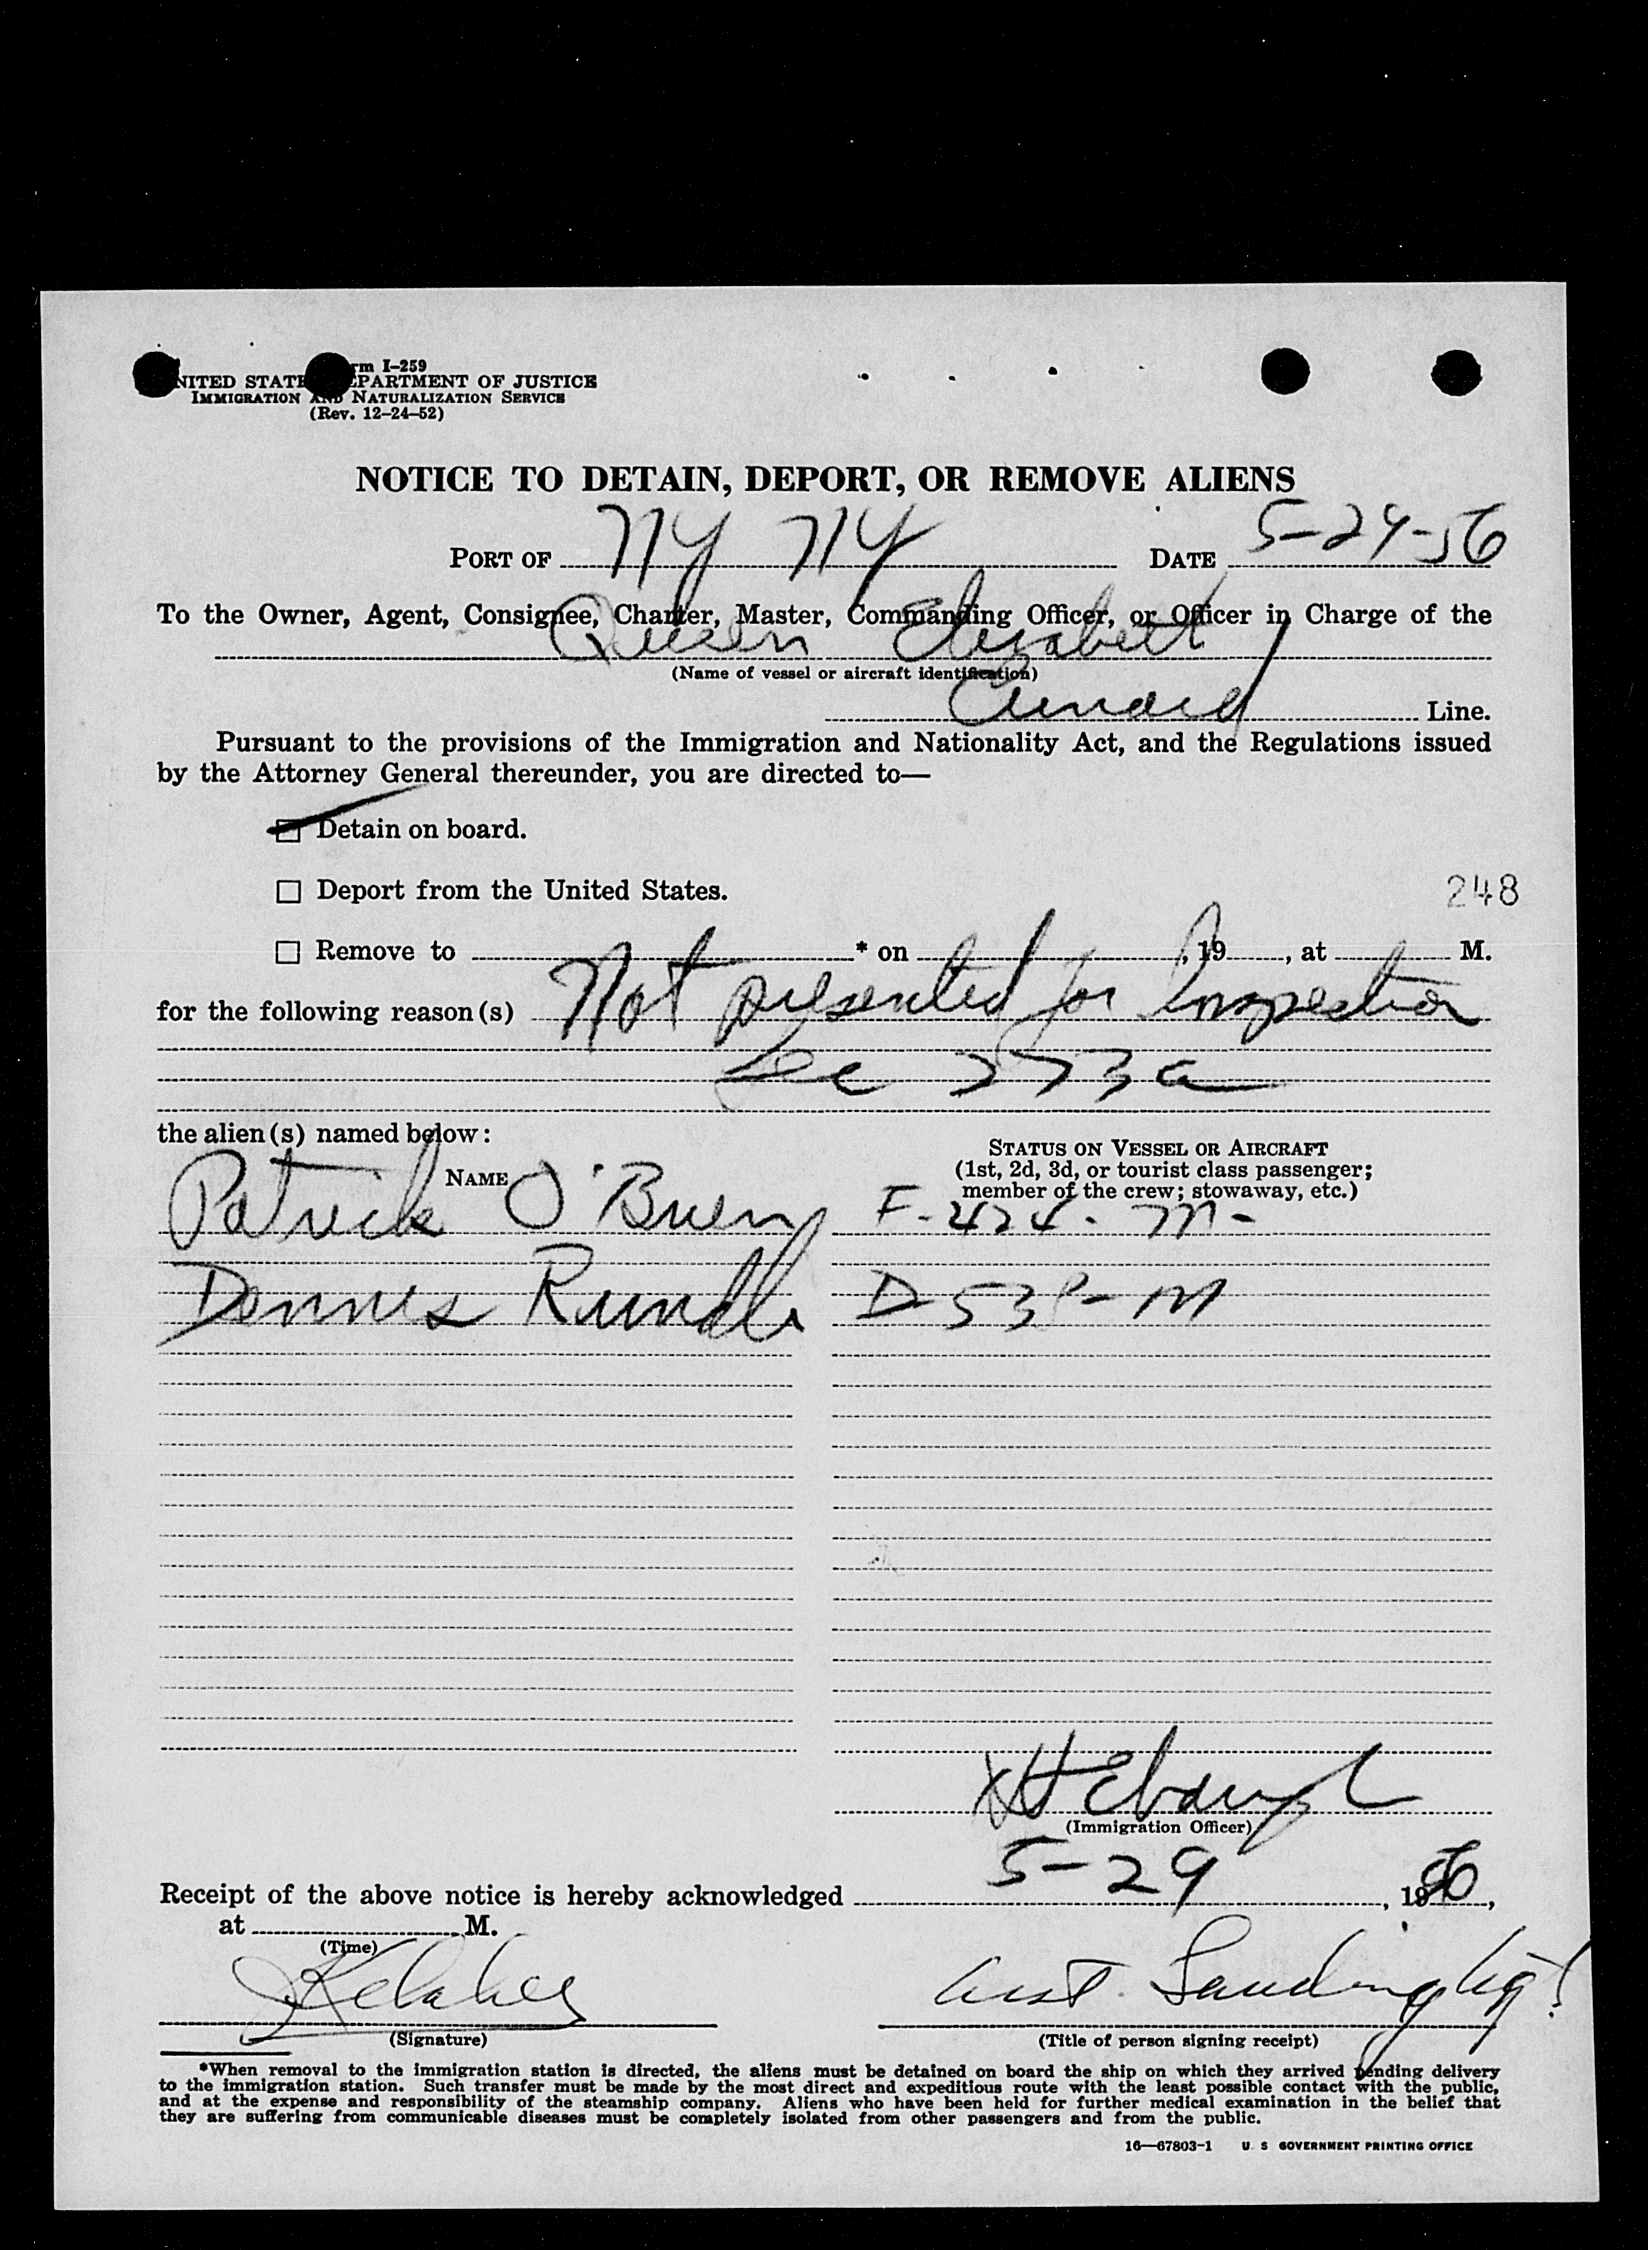 rm I-259
NITED STAT EPARTMENT OF JUSTICE
IMMIGRATION AND NATURALIZATION SERVICE
(Rev. 12-24-52)
NOTICE TO DETAIN, DEPORT, OR REMOVE ALIENS
PORT OF NY NY DATE 5-29-56
To the Owner, Agent, Consignee, Charter, Master, Commanding Officer, or Officer in Charge of the
Queen Elizabeth
(Name of vessel or aircraft identification)
Cunard Line.
Pursuant to the provisions of the Immigration and Nationality Act, and the Regulations issued
by the Attorney General thereunder, you are directed to—
☑ Detain on board.
☐ Deport from the United States.
248
☐ Remove to * on , 19 , at M.
for the following reason(s) Not presented for Inspection
Sec 273a
the alien(s) named below:
STATUS ON VESSEL OR AIRCRAFT
NAME (1st, 2d, 3d, or tourist class passenger;
member of the crew; stowaway, etc.)
Patrick O'Brien F-424-M-
Dennis Rundle D-538-M
(Immigration Officer)
Receipt of the above notice is hereby acknowledged 5-29, 1956,
at M.
(Time)
Asst. Landing
(Signature) (Title of person signing receipt)
*When removal to the immigration station is directed, the aliens must be detained on board the ship on which they arrived pending delivery
to the immigration station. Such transfer must be made by the most direct and expeditious route with the least possible contact with the public,
and at the expense and responsibility of the steamship company. Aliens who have been held for further medical examination in the belief that
they are suffering from communicable diseases must be completely isolated from other passengers and from the public.
16—67803-1 U. S. GOVERNMENT PRINTING OFFICE